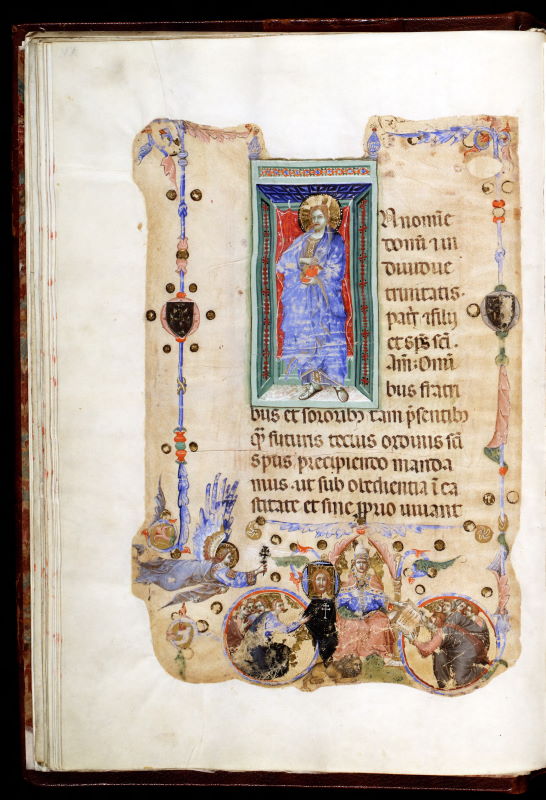 N nomine
domini ⁊ in
diuidue
trinitatis.
patris ⁊ filij
et sps sci.
Am: Omi
bus fratri
bus et sororib3 tam p̃sentib3
q̃ futuris tocius ordinis sci
sp̃tus precipiendo manda
mus. ut sub obedientia ĩ ca
stitate et sine p̱prio uiuant